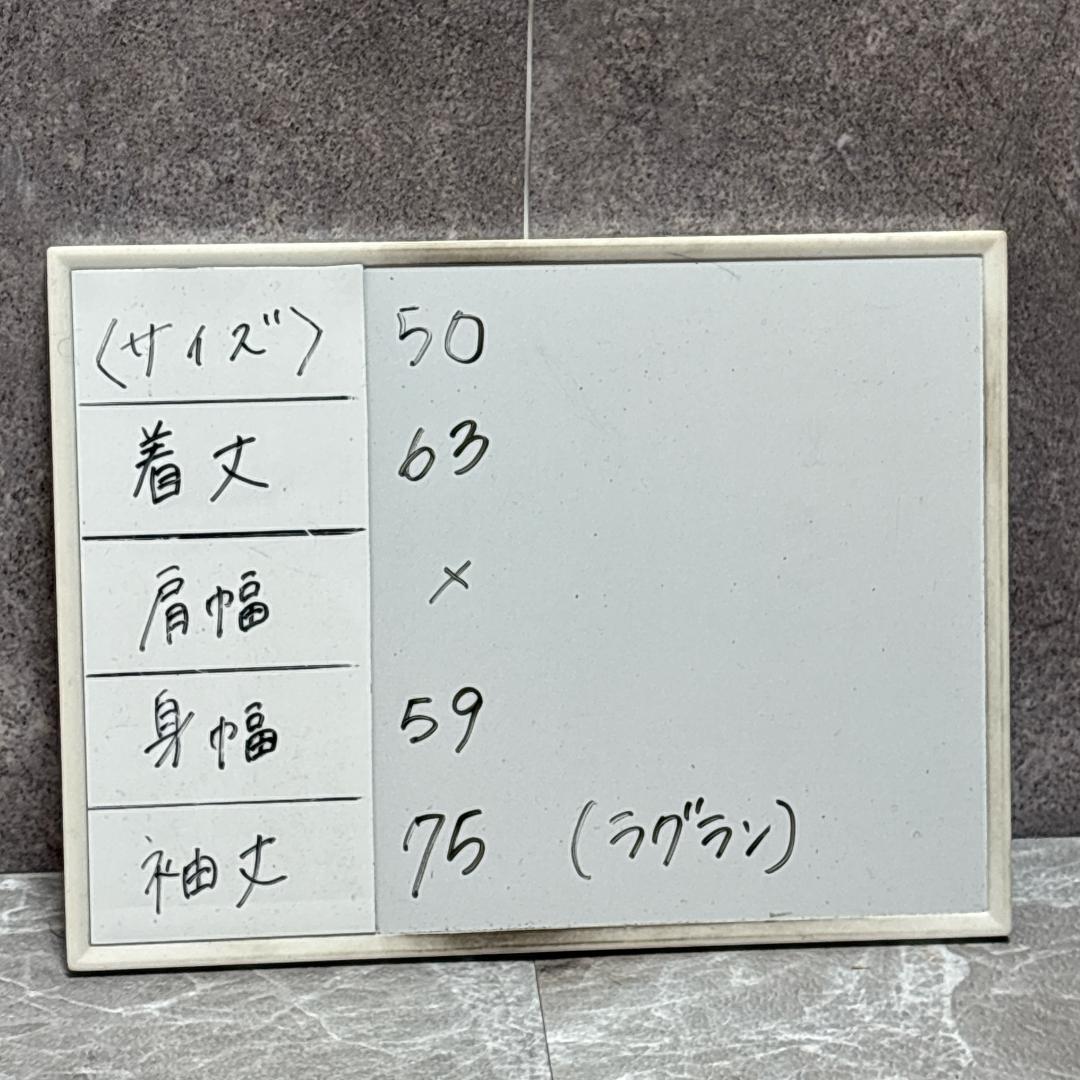 〈サイズ〉 50
着丈 63
肩幅 ×
身幅 59
袖丈 75 (ラグラン)